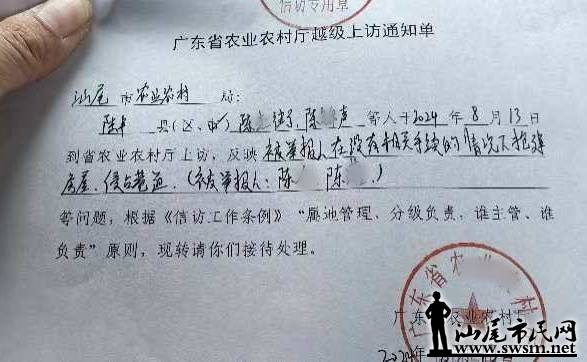 信访专用章
广东省农业农村厅越级上访通知单
汕尾市农业农村局:
陆丰县(区、市)陈 陈 声等人于2024年8月13日
到省农业农村厅上访,反映被举报人在没有相关手续的情况下抢建
房屋、侵占巷道.(被举报人:陈 陈 )
等问题,根据《信访工作条例》“属地管理、分级负责,谁主管、谁
负责”原则,现转请你们接待处理。
广东省农 村
广东 农业农村厅
2024年
汕尾市民网
www.swsm.net